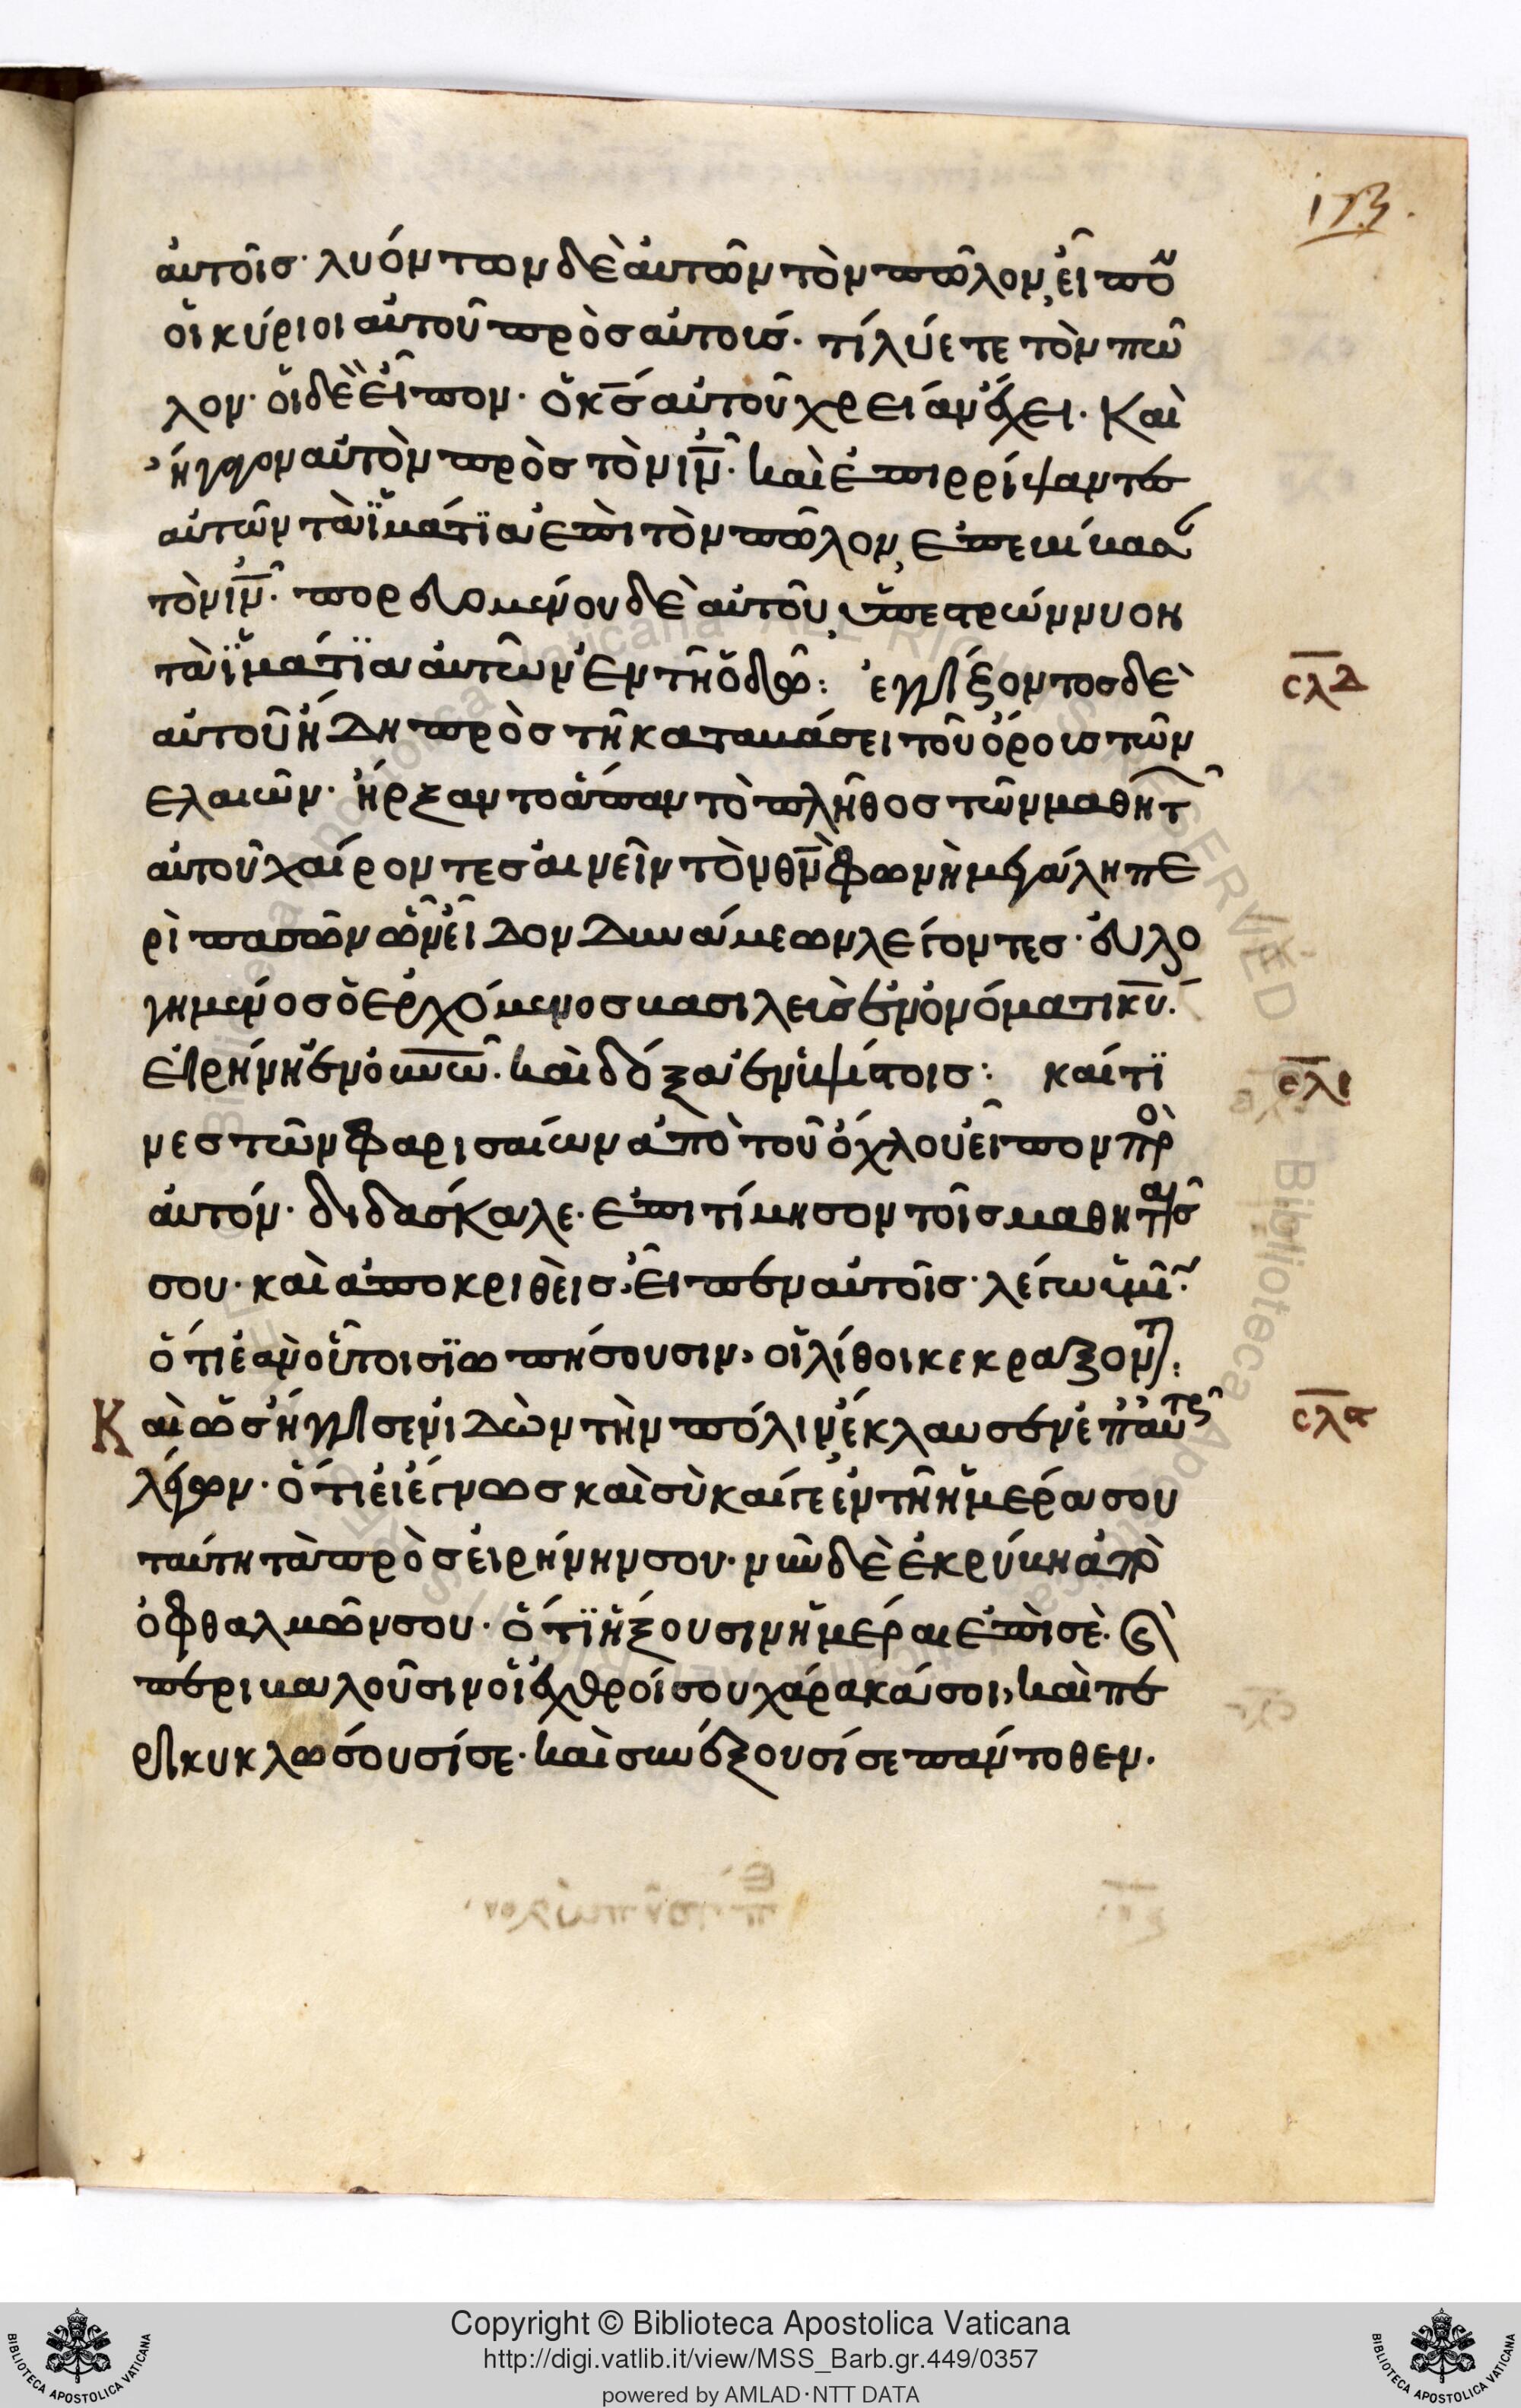 173.
αὐτοῖσ· λυόντων δὲ αὐτῶν τὸν πῶλον, εἶπο
οἱ κύριοι αὐτοῦ πρὸσ αὐτούσ· τί λύετε τὸν πῶ
λον· οἱ δὲ εἶπον· ὁ κσ αὐτοῦ χρείαν ἔχει· Καὶ
ἤγαγον αὐτὸν πρὸσ τὸν ιν· καὶ ἐπιρρίψαντεσ
αὐτῶν τὰ ϊμάτϊα ἐπὶ τὸν πῶλον, ἐπεβίβασ
τὸν ιν· πορευομένου δὲ αὐτοῦ, ὑπεστρώννυον
τὰ ϊμάτϊα αὐτῶν ἐν τῆ ὁδῶ: ἐγγίζοντοσ δὲ
σλδ
αὐτοῦ ἤδη πρὸσ τῆ καταβάσει τοῦ ὄρουσ τῶν
ἐλαιῶν· ἤρξαντο ἅπαν τὸ πλῆθοσ τῶν μαθητ
αὐτοῦ χαίροντεσ αἰνεῖν τὸν θν φωνὴ μεγάλη πε
ρὶ πασῶν ὧν εἶδον δυνάμεων λέγοντεσ· εὐλο
γημένοσ ὁ ἐρχόμενοσ βασιλεὺσ ἐν ὀνόματι κυ·
εἰρήνη ἐν οὐνω· καὶ δόξα ἐν ὑψίστοισ: καί τϊ
σλε
νεσ τῶν φαρισαίων ἀπὸ τοῦ ὄχλου εἶπον πρ
αὐτόν· διδάσκαλε· ἐπιτίμησον τοῖσ μαθηταῖσ
σου· καὶ ἀποκριθεὶσ, εἶπεν αὐτοῖσ· λέγω ὑμῖ·
ὅτι ἐὰν οὗτοι σϊωπήσουσιν, οἱ λίθοι κεκράξοντ:
Καὶ ὡσ ἤγγισεν, ἰδὼν τὴν πόλιν, ἔκλαυσεν ἐπ αὐτῆ
σλς
λέγων· ὅτι εἰ ἔγνωσ καὶ σὺ καίγε ἐν τῆ ἡμέρα σου
ταύτη τὰ πρὸσ εἰρήνην σου· νῦν δὲ ἐκρύβη ἀπὸ
ὀφθαλμῶν σου· ὅτϊ ἥξουσιν ἡμέραι ἐπὶ σὲ· ϗ
περιβαλοῦσιν οἱ ἐχθροί σου χάρακά σοι, καὶ πε
ρικυκλώσουσί σε· καὶ συνέξουσί σε πάντοθεν·
Copyright © Biblioteca Apostolica Vaticana
http://digi.vatlib.it/view/MSS_Barb.gr.449/0357
powered by AMLAD·NTT DATA